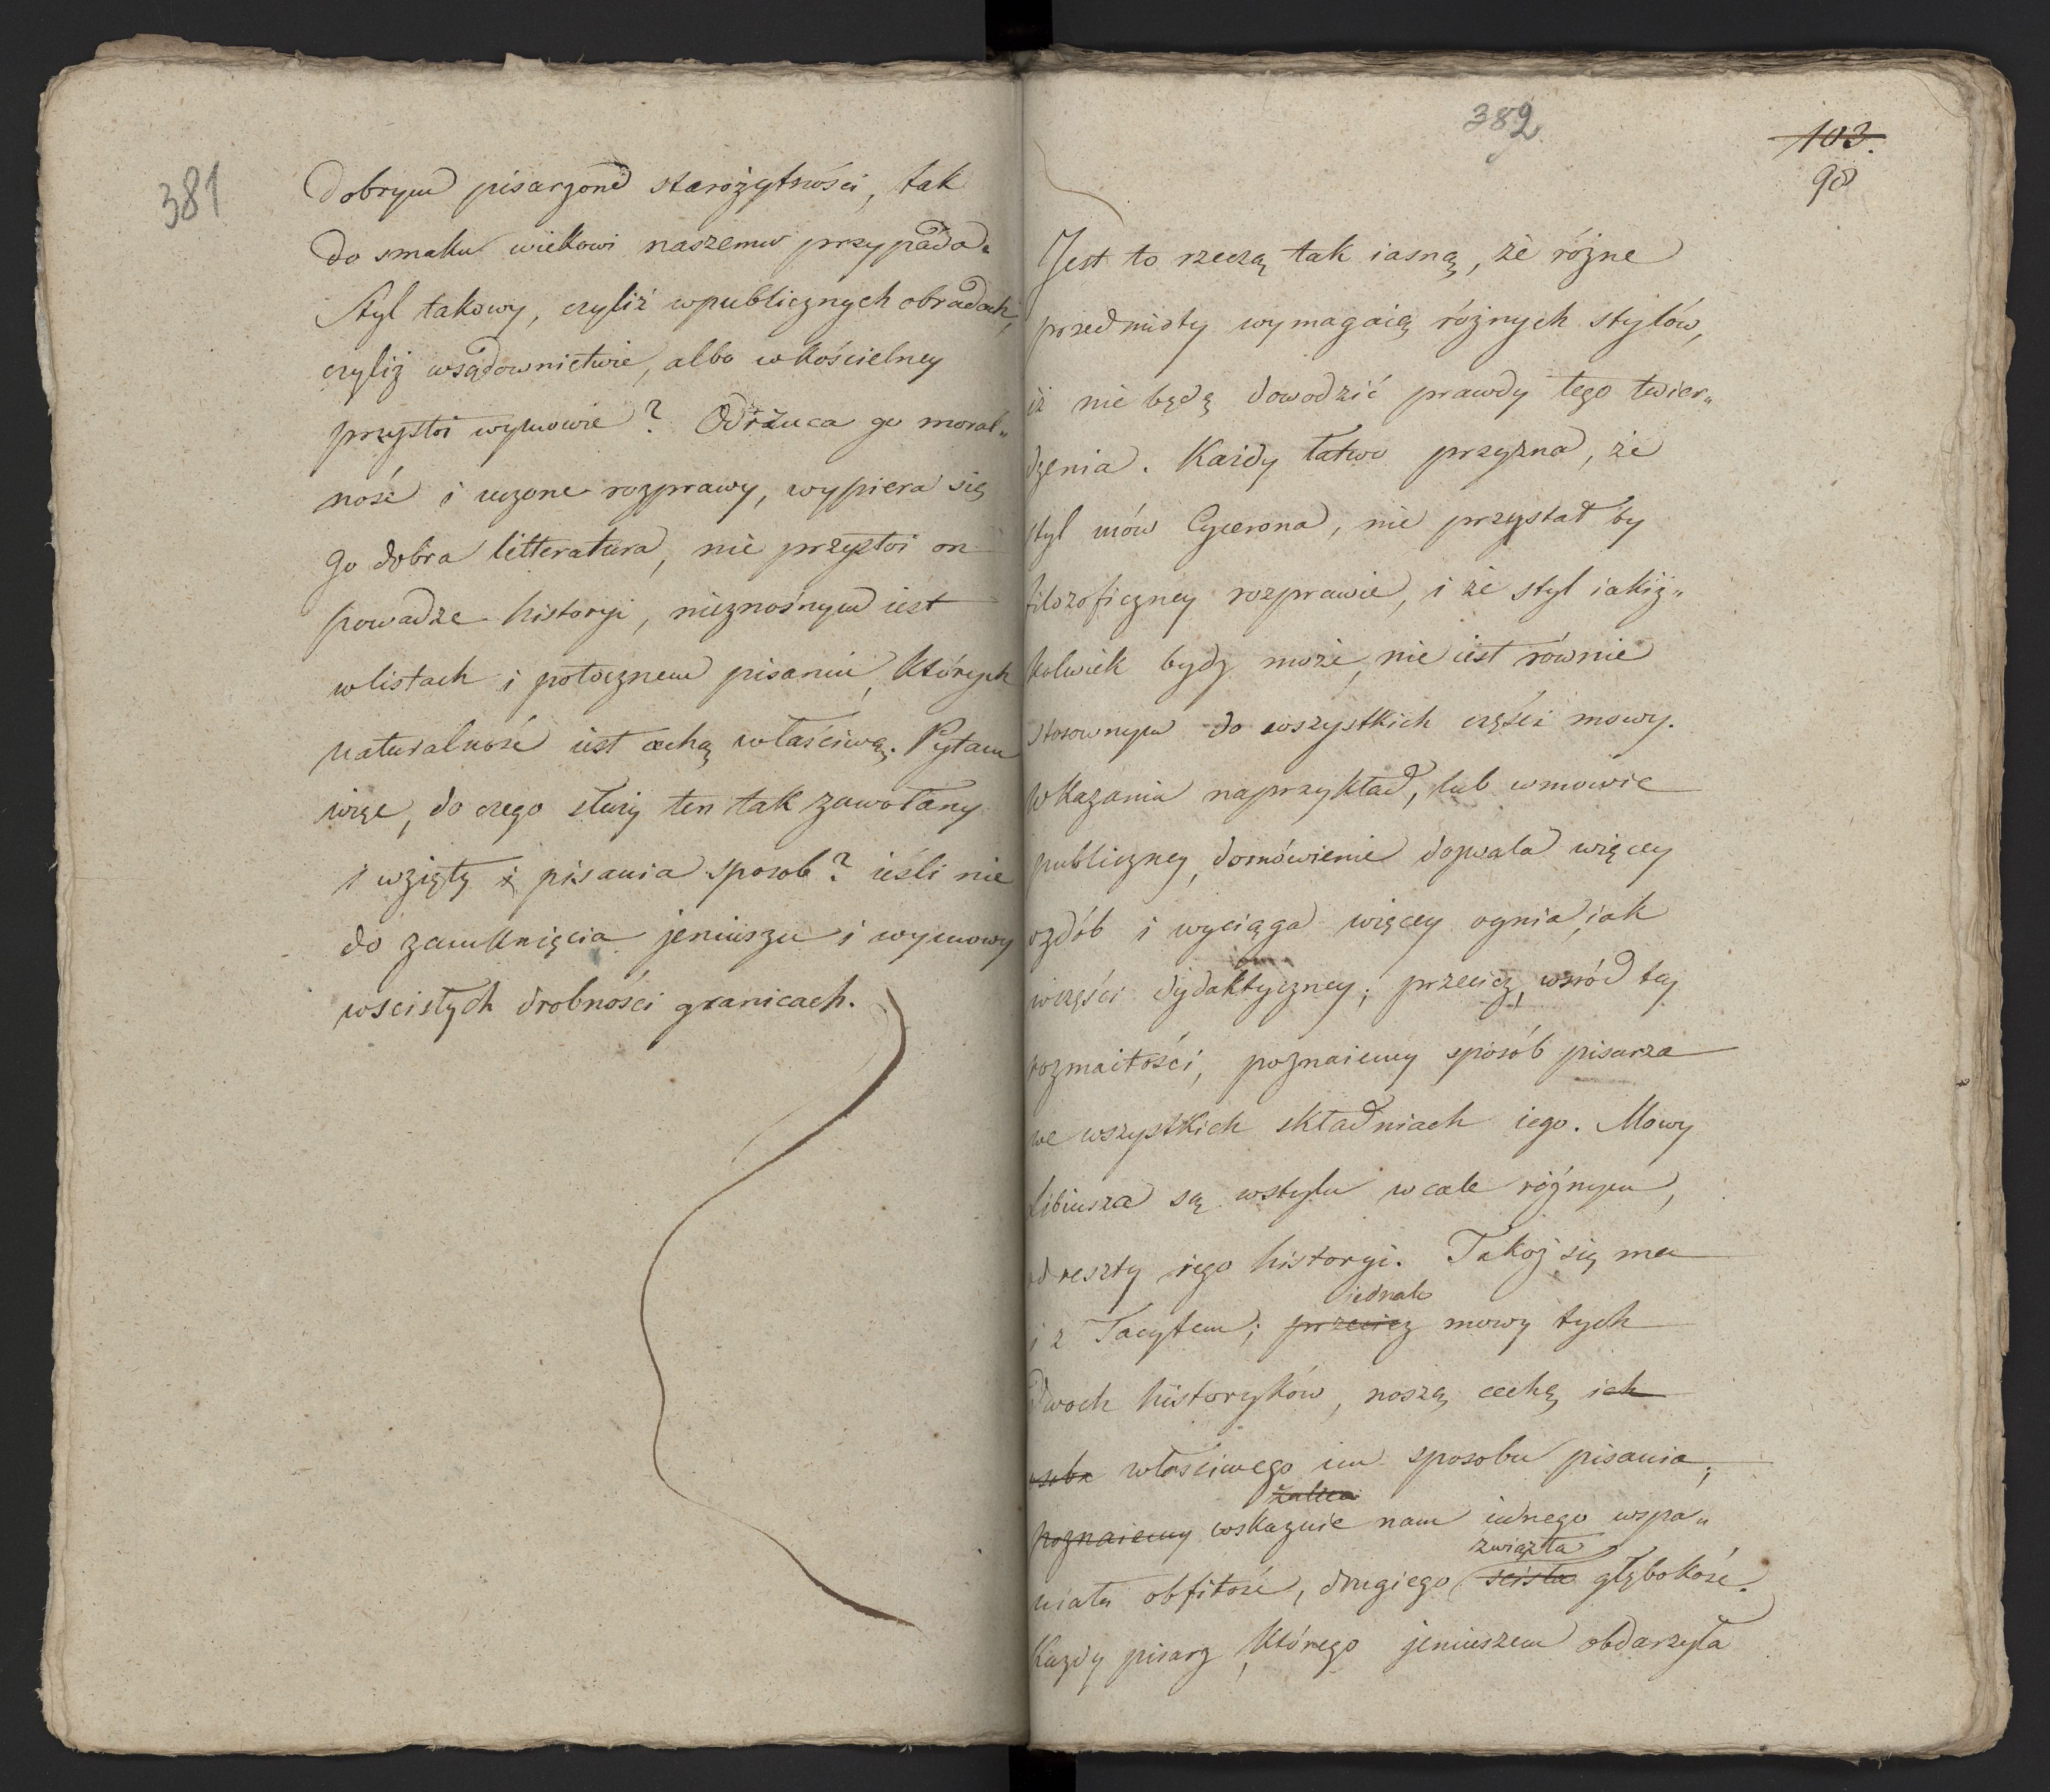 381
dobrym pisarzom starożytności, tak
do smaku wiekowi naszemu przypada.
Styl takowy, czyliż wpublicznych obradach,
czyliż wsądownictwie, albo wkościelney
przystoi wymowie? Odrzuca go moral„
ność i uczone rozprawy, wypiera się
go dobra litteratura, nie przystoi on
powadze historyi, nieznośnym iest
wlistach i potocznem pisaniu, których
naturalność iest cechą właściwą. Pytam
więc, do czego służy ten tak zawołany
i wzięty pisania sposob? ieśli nie
do zamknięcia jeniuszu i wymowy
wscisłych drobności granicach.
382
103.
98
Jest to rzeczą tak iasną, że różne
przedmioty wymagaią różnych stylów,
iż nie będę dowodzić prawdy tego twier„
dzenia. Każdy łatwo przyzna, że
styl mów Cycerona, nie przystał by
filozoficzney rozprawie, i że styl iakiż„
kolwiek bydz może, nie iest równie
stosownym do wszystkich części mowy.
W kazaniu naprzykład, lub wmowie
publiczney, domówienie dozwala więcey
ozdób i wyciąga więcey ognia, iak
wczęści dydaktyczney; przecież, wśród tey
rozmaitości, poznaiemy sposób pisarza
we wszystkich składniach iego. Mowy
Libiusza są wstylu wcale różnym,
od reszty iego historyi. Takoż się ma
iednak
i z Tacytem; przecież mowy tych
dwoch historyków, noszą cechę ich
osobę właściwego im sposobu pisania;
poznaiemy wskazuie nam iednego wspa„
związła
niałą obfitość, drugiego scisła głębokość.
Każdy pisarz, którego jeniuszem obdarzyła